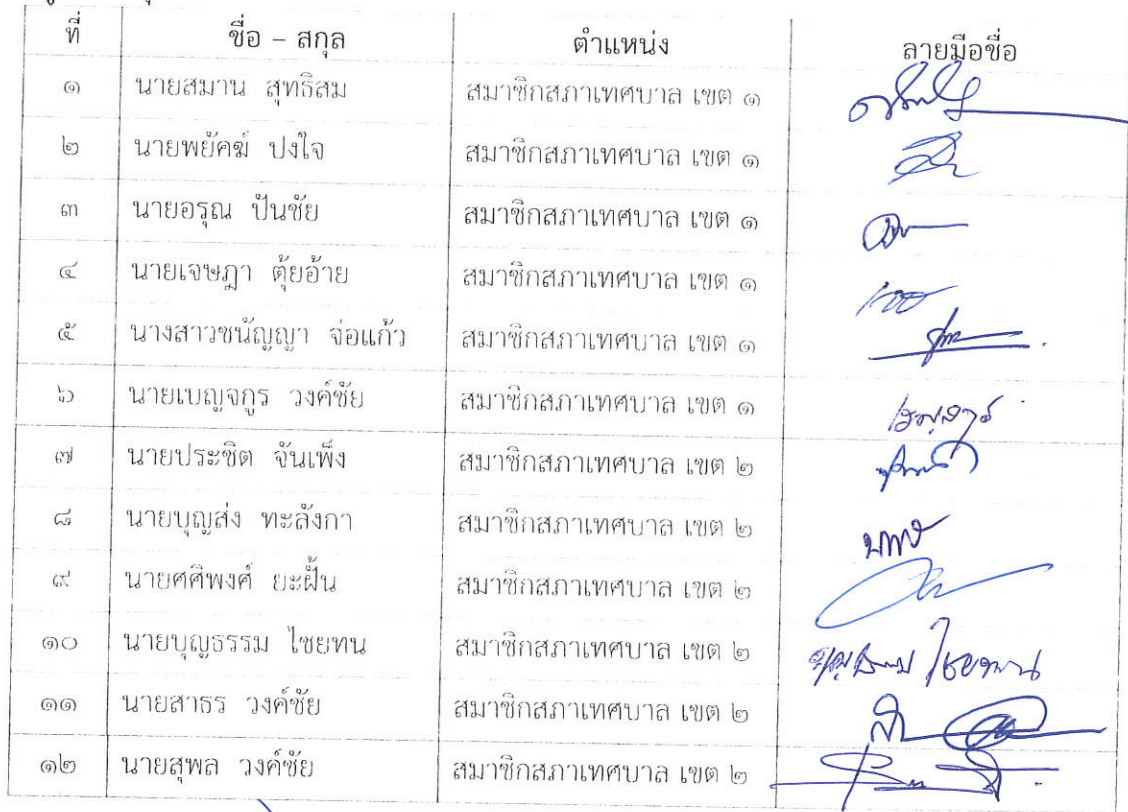 ที่ ชื่อ – สกุล ตำแหน่ง ลายมือชื่อ
๑ นายสมาน สุทธิสม สมาชิกสภาเทศบาล เขต ๑
๒ นายพยัคฆ์ ปงใจ สมาชิกสภาเทศบาล เขต ๑
๓ นายอรุณ ปันชัย สมาชิกสภาเทศบาล เขต ๑
๔ นายเจษฎา ตุ้ยอ้าย สมาชิกสภาเทศบาล เขต ๑
๕ นางสาวชนัญญา จ่อแก้ว สมาชิกสภาเทศบาล เขต ๑
๖ นายเบญจกูร วงค์ชัย สมาชิกสภาเทศบาล เขต ๑
๗ นายประชิต จันเพ็ง สมาชิกสภาเทศบาล เขต ๒
๘ นายบุญส่ง ทะลังกา สมาชิกสภาเทศบาล เขต ๒
๙ นายศศิพงศ์ ยะฝั้น สมาชิกสภาเทศบาล เขต ๒
๑๐ นายบุญธรรม ไชยทน สมาชิกสภาเทศบาล เขต ๒
๑๑ นายสาธร วงค์ชัย สมาชิกสภาเทศบาล เขต ๒
๑๒ นายสุพล วงค์ชัย สมาชิกสภาเทศบาล เขต ๒